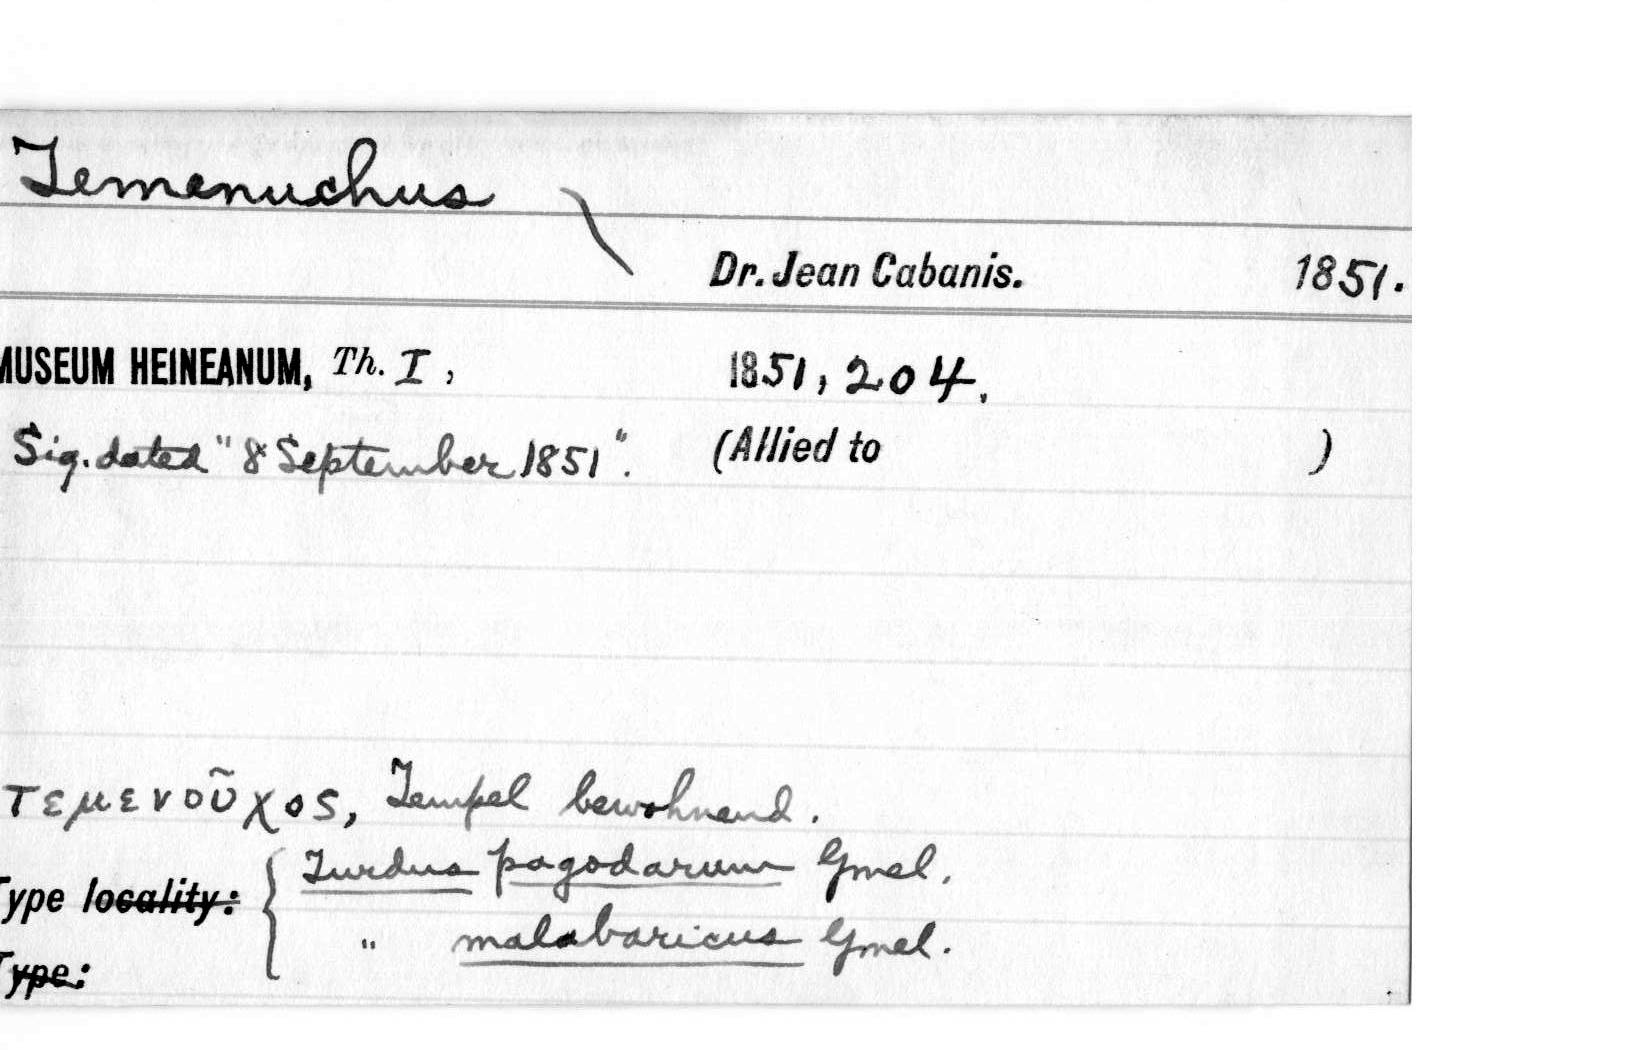 Temenuchus
Dr. Jean Cabanis. 1851.
MUSEUM HEINEANUM, Th. I, 1851, 204.
Sig. dated "8 September 1851". (Allied to )
τεμενοῦχος, Tempel bewohnend.
Type locality: { Turdus pagodarum Gmel.
" malabaricus Gmel.
Type: